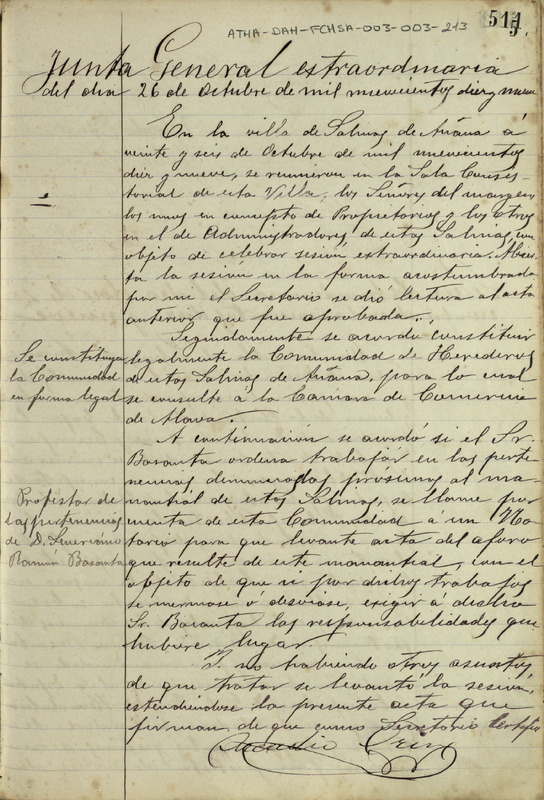 ATHA-DAH-FCHSA-003-003-213
514
5.
Junta General extraordinaria
del dia 26 de Octubre de mil novecientos diez y nueve
En la villa de Salinas de Añana á
veinte y seis de Octubre de mil novecientos
diez y nueve, se reunieron en la Sala Consis-
torial de esta Villa, los Señores del margen
los unos en concepto de Propietarios y los otros
en el de Administradores, de estas Salinas, con
objeto de celebrar sesión extraordinaria. Abier-
ta la sesion en la forma acostumbrada
por mi el Secretario se dió lectura al acta
anterior que fue aprobada.
Seguidamente se acordo constituir
Se constituya
legalmente la Comunidad de Herederos
la Comunidad
de estas Salinas de Añana, para lo cual
en forma legal
se consulte a la Camara de Comercio
de Alava.
A continuación se acordó si el Sr.
Basanta ordena trabajar en las perte-
nencias denunciadas próximas al ma-
Protestar de
nantial de estas Salinas, se llame por
las pertenencias
cuenta de esta Comunidad á un No-
de D. Severiano
tario para que levante acta del aforo
Ramón Basanta
que resulte de este manantial, con el
objeto de que si por dichos trabajos
se mermase ó desviase, exigir á dicho
Sr. Basanta las responsabilidades que
hubiere lugar.
Y no habiendo otros asuntos
de que tratar se levantó la sesion,
estendiendose la presente acta que
firman, de que como Secretario Certifico